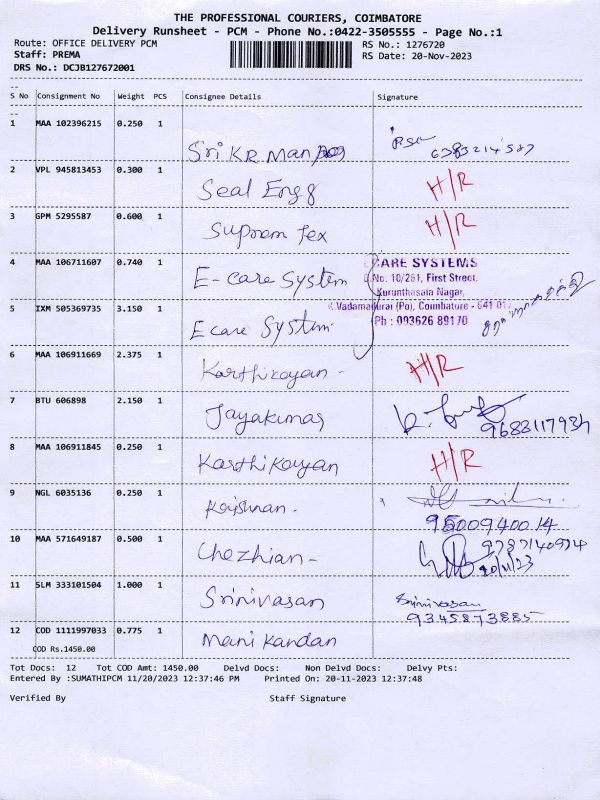 THE PROFESSIONAL COURIERS, COIMBATORE
Delivery Runsheet - PCM - Phone No.:0422-3505555 - Page No.:1
Route: OFFICE DELIVERY PCM RS No.: 1276720
Staff: PREMA RS Date: 20-Nov-2023
DRS No.: DCJB127672001
S No Consignment No Weight PCS Consignee Details Signature
1 MAA 102396215 0.250 1
Sri KR 6383214587
2 VPL 945813453 0.300 1
Seal Engg H/R
3 GPM 5295587 0.600 1 H/R
Suprem Tex
4 MAA 106711607 0.740 1 CARE SYSTEMS
E-care System D.No: 10/261, First Street,
Kurunthasala Nagar,
5 IXM 505369735 3.150 1 Coimbatore - 641 01
Ecare System Ph : 093626 89170
6 MAA 106911669 2.375 1 H/R
Karthikeyan -
7 BTU 606898 2.150 1
Jayakumar 9688117934
8 MAA 106911845 0.250 1 H/R
Karthikeyan
9 NGL 6035136 0.250 1
Krishnan - 9500940014
10 MAA 571649187 0.500 1 9787140974
Chezhian - 20/11/23
11 SLM 333101504 1.000 1 Srinivasan
Srinivasan 9345873885
12 COD 1111997033 0.775 1
COD Rs.1450.00 Mani Kandan
Tot Docs: 12 Tot COD Amt: 1450.00 Delvd Docs: Non Delvd Docs: Delvy Pts:
Entered By :SUMATHIPCM 11/20/2023 12:37:46 PM Printed On: 20-11-2023 12:37:48
Verified By Staff Signature